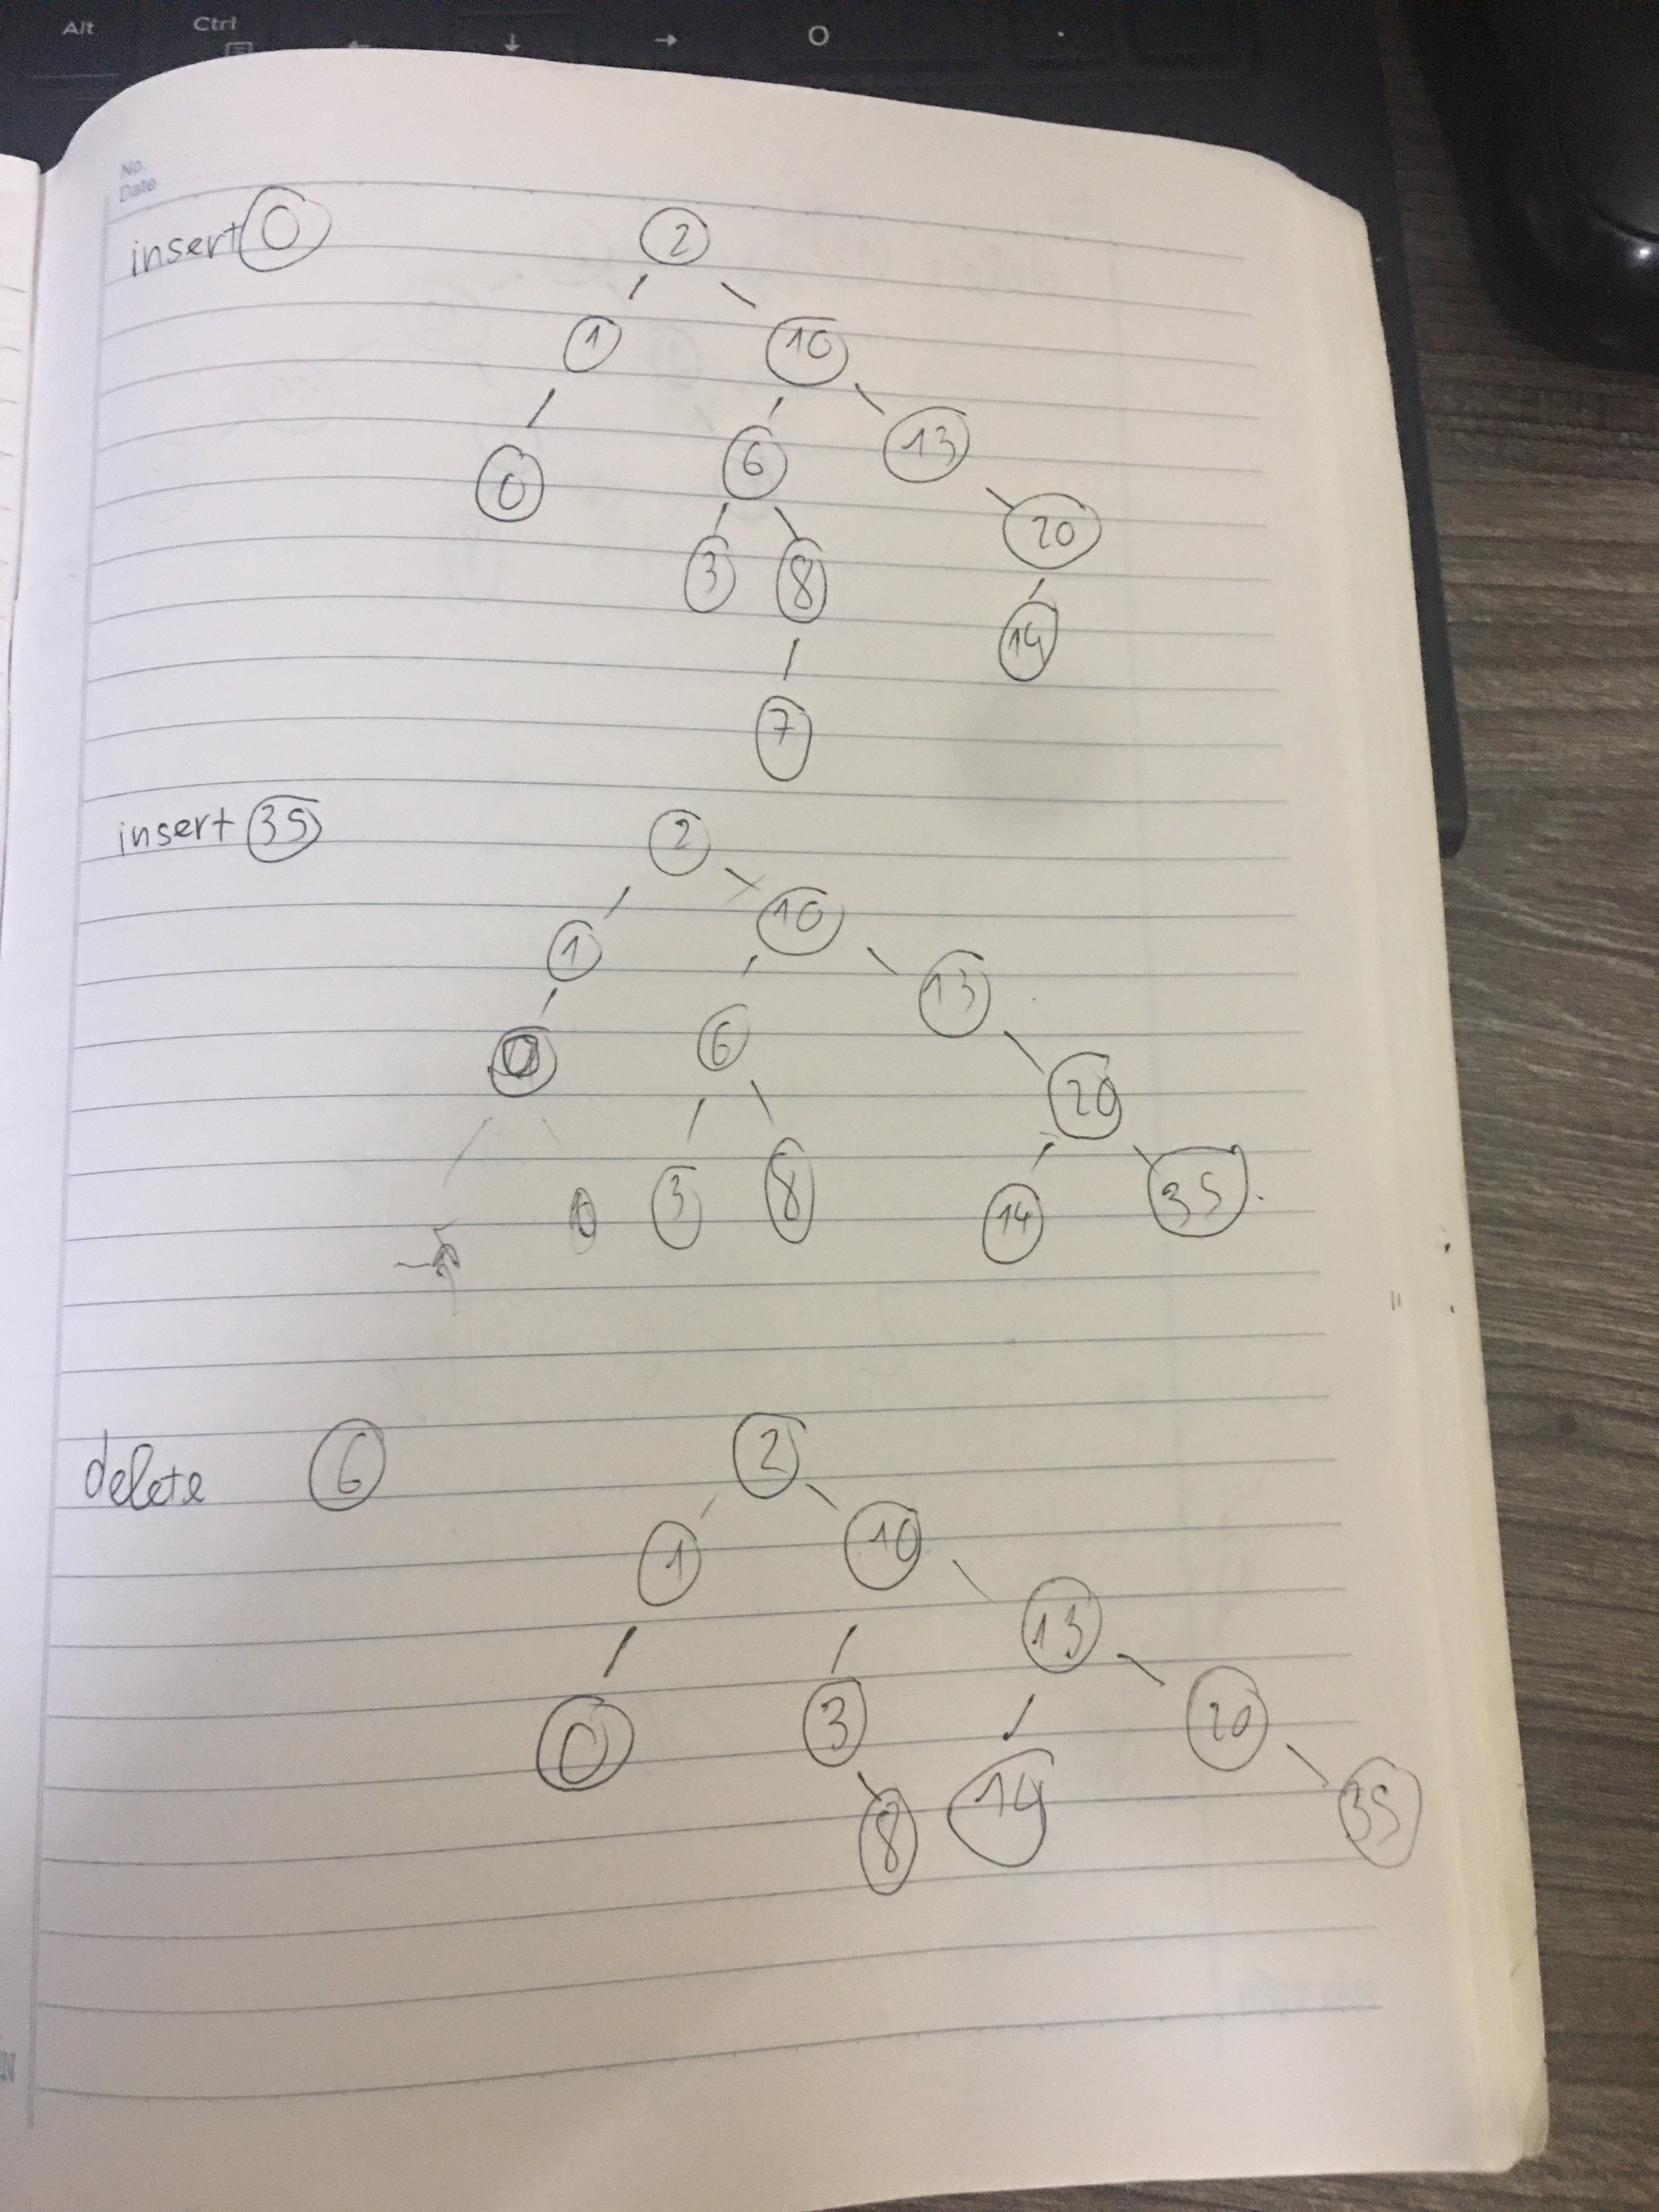 Alt Ctrl
No.
Date
insert 0
2
1 10
0 6 13
3 8 20
14
7
insert 35
2
1 10
0 6 13
20
3 8 14 35
delete 6
2
1 10
13
0 3 20
8 14 35